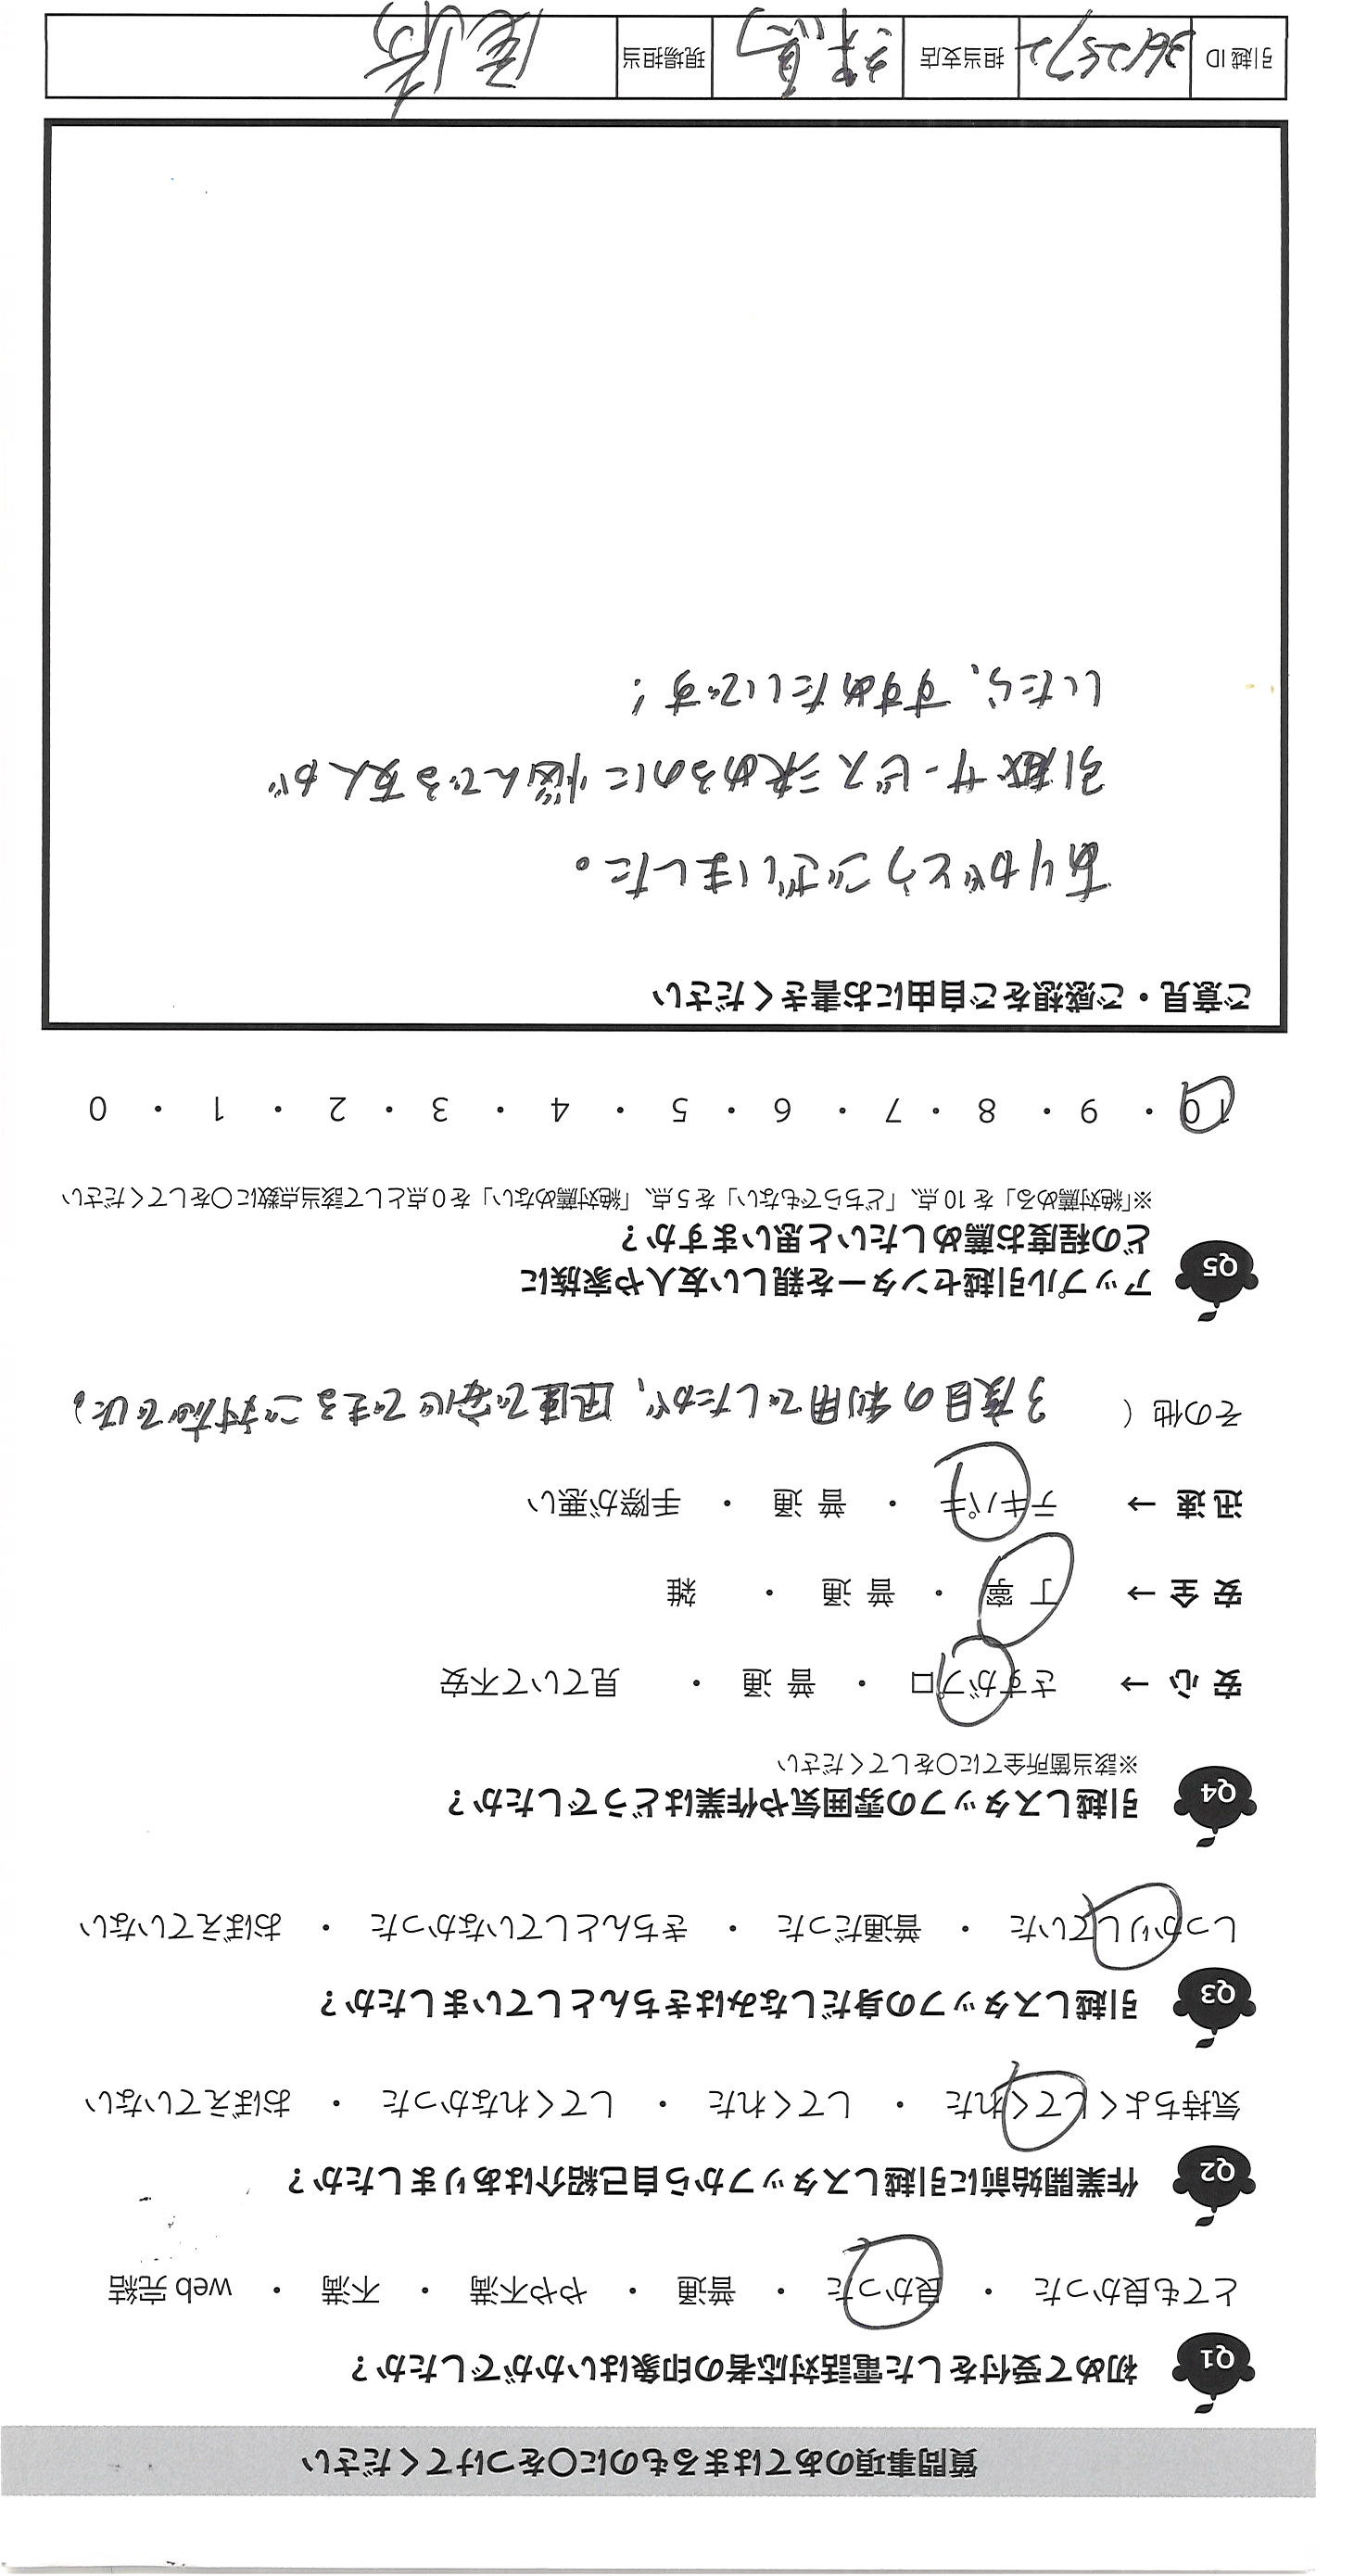 質問事項のあてはまるものに〇をつけてください
Q1 初めて受付をした電話対応者の印象はいかがでしたか？
とても良かった ・ 良かった ・ 普通 ・ やや不満 ・ 不満 ・ web 完結
Q2 作業開始前に引越しスタッフから自己紹介はありましたか？
気持ちよくしてくれた ・ してくれた ・ してくれなかった ・ おぼえていない
Q3 引越しスタッフの身だしなみはきちんとしていましたか？
しっかりしていた ・ 普通だった ・ きちんとしていなかった ・ おぼえていない
Q4 引越しスタッフの雰囲気や作業はどうでしたか？
※該当箇所全てに〇をしてください
安 心 → さすがプロ ・ 普 通 ・ 見ていて不安
安 全 → 丁 寧 ・ 普 通 ・ 雑
迅 速 → テキパキ ・ 普 通 ・ 手際が悪い
その他（ 3度目の利用でしたが、迅速で安心できるご対応でした。
Q5 アップル引越センターを親しい友人や家族に
どの程度お薦めしたいと思いますか？
※「絶対薦める」を 10 点、「どちらでもない」を 5 点、「絶対薦めない」を 0 点として該当点数に〇をしてください
10 ・ 9 ・ 8 ・ 7 ・ 6 ・ 5 ・ 4 ・ 3 ・ 2 ・ 1 ・ 0
ご意見・ご感想をご自由にお書きください
ありがとうございました。
引越サービス決めるのに悩んでる友人が
いたら、すすめたいです！
引越 ID 3612572 担当支店 現場担当